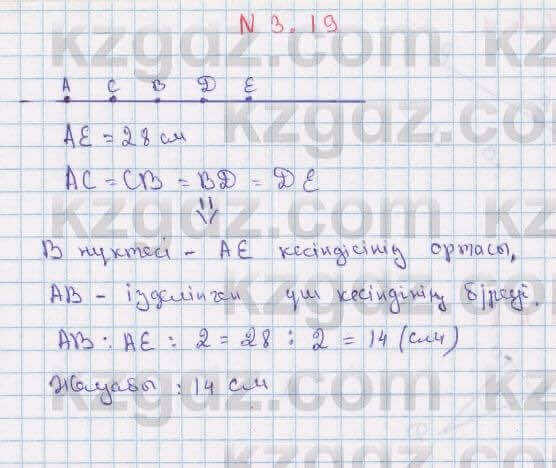 N 3.19
A C B D E
AE = 28 см
AC = CB = BD = DE
В нүктесі - AE кесіндісінің ортасы,
AB - ізделінген үш кесіндінің біреуі.
AB : AE : 2 = 28 : 2 = 14 (см)
Жауабы : 14 см
kzgdz.com